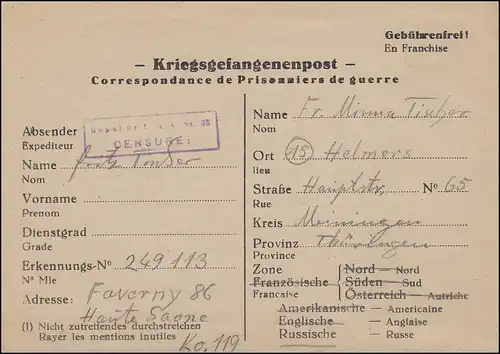 Gebührenfrei!
En Franchise
– Kriegsgefangenenpost –
Correspondance de Prisonniers de guerre
Absender
Expediteur
CENSURE:
Name Fritz
Nom
Vorname
Prenom
Dienstgrad
Grade
Erkennungs-Nº 249113
Nº Mle
Adresse: Faverny 86
Haute Saone
(1) Nicht zutreffendes durchstreichen
Rayer les mentions inutiles
Ko. 119
Name Fr. Minna Tischer
Nom
Ort (15) Helmers
lieu
Straße Hauptstr. Nº 65
Rue
Kreis Meiningen
Provinz Thüringen
Province
Zone Nord – Nord
Französische Süden – Sud
Francaise Österreich – Autriche
Amerikanische – Americaine
Englische – Anglaise
Russische – Russe